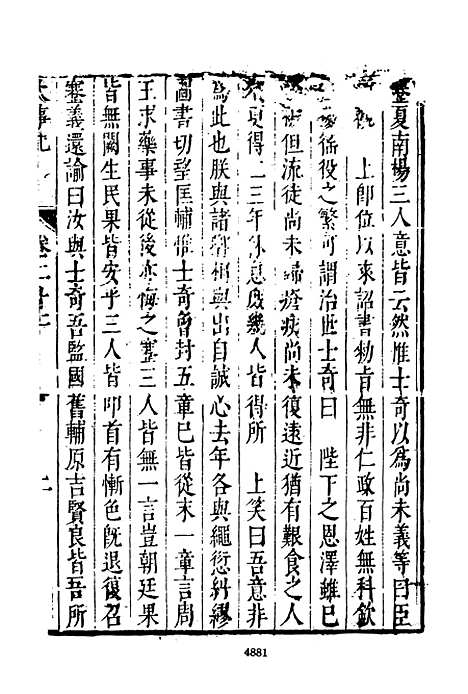 蹇夏南場三人意皆云然惟士奇以為尚未義等曰臣
觀　上即位以來詔書勅旨無非仁政百姓無科歛
徭役之繁可謂治世士奇曰　陛下之恩澤雖已
但流徒尚未歸瘡痍尚未復遠近猶有艱食之人
更得二三年休息庶幾人皆得所　上笑曰吾意非
為此也朕與諸卿相與出自誠心去年各與繩愆糾繆
圖書切望匡輔惟士奇曾封五章已皆從末一章言周
王求藥事未從後亦悔之蹇三人皆無一言豈朝廷果
皆無闕生民果皆安乎三人皆叩首有慚色旣退復召
蹇義還諭曰汝與士奇吾監國舊輔原吉賢良皆吾所
卷二
二
4881